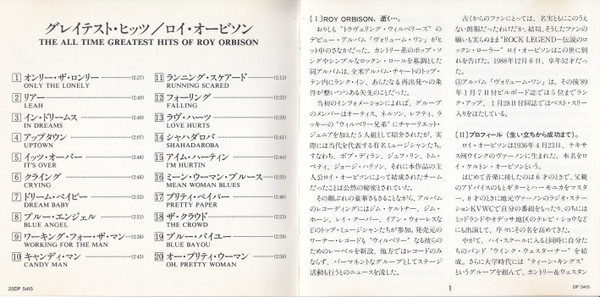 グレイテスト・ヒッツ／ロイ・オービソン
THE ALL TIME GREATEST HITS OF ROY ORBISON
1 オンリー・ザ・ロンリー (2:27)
ONLY THE LONELY
2 リアー (2:40)
LEAH
3 イン・ドリームス (2:48)
IN DREAMS
4 アップタウン (2:07)
UPTOWN
5 イッツ・オーバー (2:47)
IT'S OVER
6 クライング (2:46)
CRYING
7 ドリーム・ベイビー
DREAM BABY
8 ブルー・エンジェル
BLUE ANGEL
9 ワーキング・フォー・ザ・マン
WORKING FOR THE MAN
10 キャンディ・マン
CANDY MAN
11 ランニング・スケアード (2:12)
RUNNING SCARED
12 フォーリング
FALLING
13 ラヴ・ハーツ
LOVE HURTS
14 シャハダロバ
SHAHADAROBA
15 アイム・ハーティン
I'M HURTIN
16 ミーン・ウーマン・ブルース
MEAN WOMAN BLUES
17 プリティ・ペイパー
PRETTY PAPER
18 ザ・クラウド
THE CROWD
19 ブルー・バイユー
BLUE BAYOU
20 オー・プリティ・ウーマン
OH, PRETTY WOMAN
20DP 5415
[I] ROY ORBISON、逝く…。
おりしも“トラヴェリング・ウィルベリーズ”の
デビュー・アルバム「ヴォリューム・ワン」がヒ
ット中のさなかだった。カントリー系のポップ・ソ
ングやシンプルなロックン・ロールを基調とした
同アルバムは、全米アルバム・チャートのトップ・
テン内にランク・イン、あらたなる再出発への条
件が整いつつある矢先のことだった。
当初のインフォメーションによれば、グループ
のメンバーはオーティス、ネルソン、レフティ、ラ
ッキーの“ウィルベリー兄弟”にチャーリー・T・
ジュニアを加えた5人組として紹介されたが、実
際には当代を代表する有名ミュージシャンたち、
すなわち、ボブ・ディラン、ジェフ・リン、トム・
ペティ、ジョージ・ハリスン、それに本作品の主
人公ロイ・オービソンによって結成されたチーム
だったことは公然の秘密とされていた。
その顔ぶれの豪華さもさることながら、アルバム
のレコーディングにはジム・ケルトナー、ジム・
ホーン、レイ・クーパー、イアン・ウォーレスな
どのトップ・ミュージシャンたちが参加。発売元の
ワーナー・レコードも“ウィルベリー”なる縁から
のためのレーベルを新設、他方ではレコードのみ
ならず、パーマネントなグループとしてステージ
活動も行うとのニュースを流した。
古くからのファンにとっては、名実ともにこのうえ
ない朗報だったわけだが、結局、そうしたファンの
願いも実らぬまま“ROCK LEGEND＝伝説のロ
ックン・ローラー” ロイ・オービソンはこの世に別
れを告げた。1988年12月6日、享年52才だっ
た。
①アルバム「ヴォリューム・ワン」は、その後'89
年1月7日付ビルボード誌では5位までラン
ク・アップ、1月28日付同誌ではベスト・スリ
ー入りをはたしている。
[II] プロフィール（生い立ちから成功まで）。
ロイ・オービソンは1936年4月23日、テキサ
ス州ウインクのヴァーノンに生まれた。本名をロ
イ・ケルトン・オービソンという。
はじめて音楽に接したのは6才のときで、父親
のアドバイスのもとギターとハーモニカをマスタ
ー。8才のときに地元ヴァーノンのラジオ・ステー
ションKVWCで自分の番組をもったり、のちには
ミッドランドやオデッサ地区のテレビ・ショウなど
にも出演して、序々にその名を高めてきた。
やがて、ハイ・スクールに入ると同時に自分た
ちのバンド“ウインク・ウェスターナー”を結成す
る。さらに大学時代には“ティーン・キングス”
というグループを組んで、カントリー＆ウェスタン
1
DP 5415